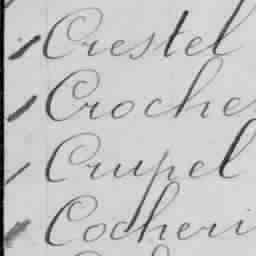 Crestel
Croche
Crupel
Cocheri